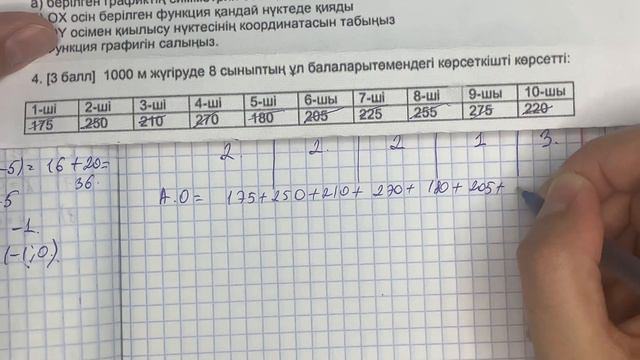 а) берілген графиктің
OX осін берілген функция қандай нүктеде қияды
OY осімен қиылысу нүктесінің координатасын табыңыз
функция графигін салыңыз.
4. [3 балл] 1000 м жүгіруде 8 сыныптың ұл балаларытөмендегі көрсеткішті көрсетті:
1-ші 2-ші 3-ші 4-ші 5-ші 6-шы 7-ші 8-ші 9-шы 10-шы
175 250 210 270 180 205 225 255 275 220
2. 2. 2 1 3.
-5)= 16+20=
36.
А.О= 175+250+210+ 270+ 180+ 205+
-5
-1.
(-1;0).